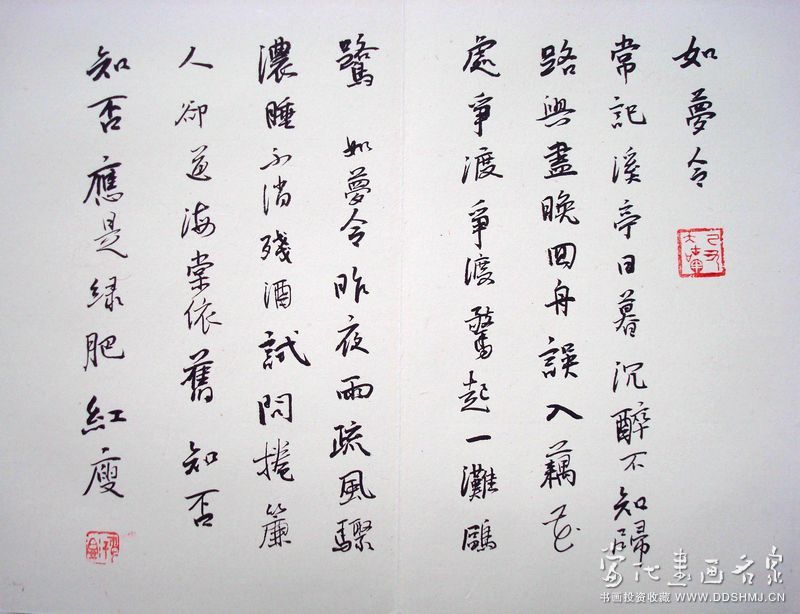 如夢令
常記溪亭日暮沉醉不知歸
路興盡晚回舟誤入藕花
處爭渡爭渡驚起一灘鷗
鷺 如夢令昨夜雨疏風驟
濃睡不消殘酒試問捲簾
人卻道海棠依舊知否
知否應是綠肥紅瘦
当代書画名家
书画投资收藏 WWW.DDSHMJ.CN